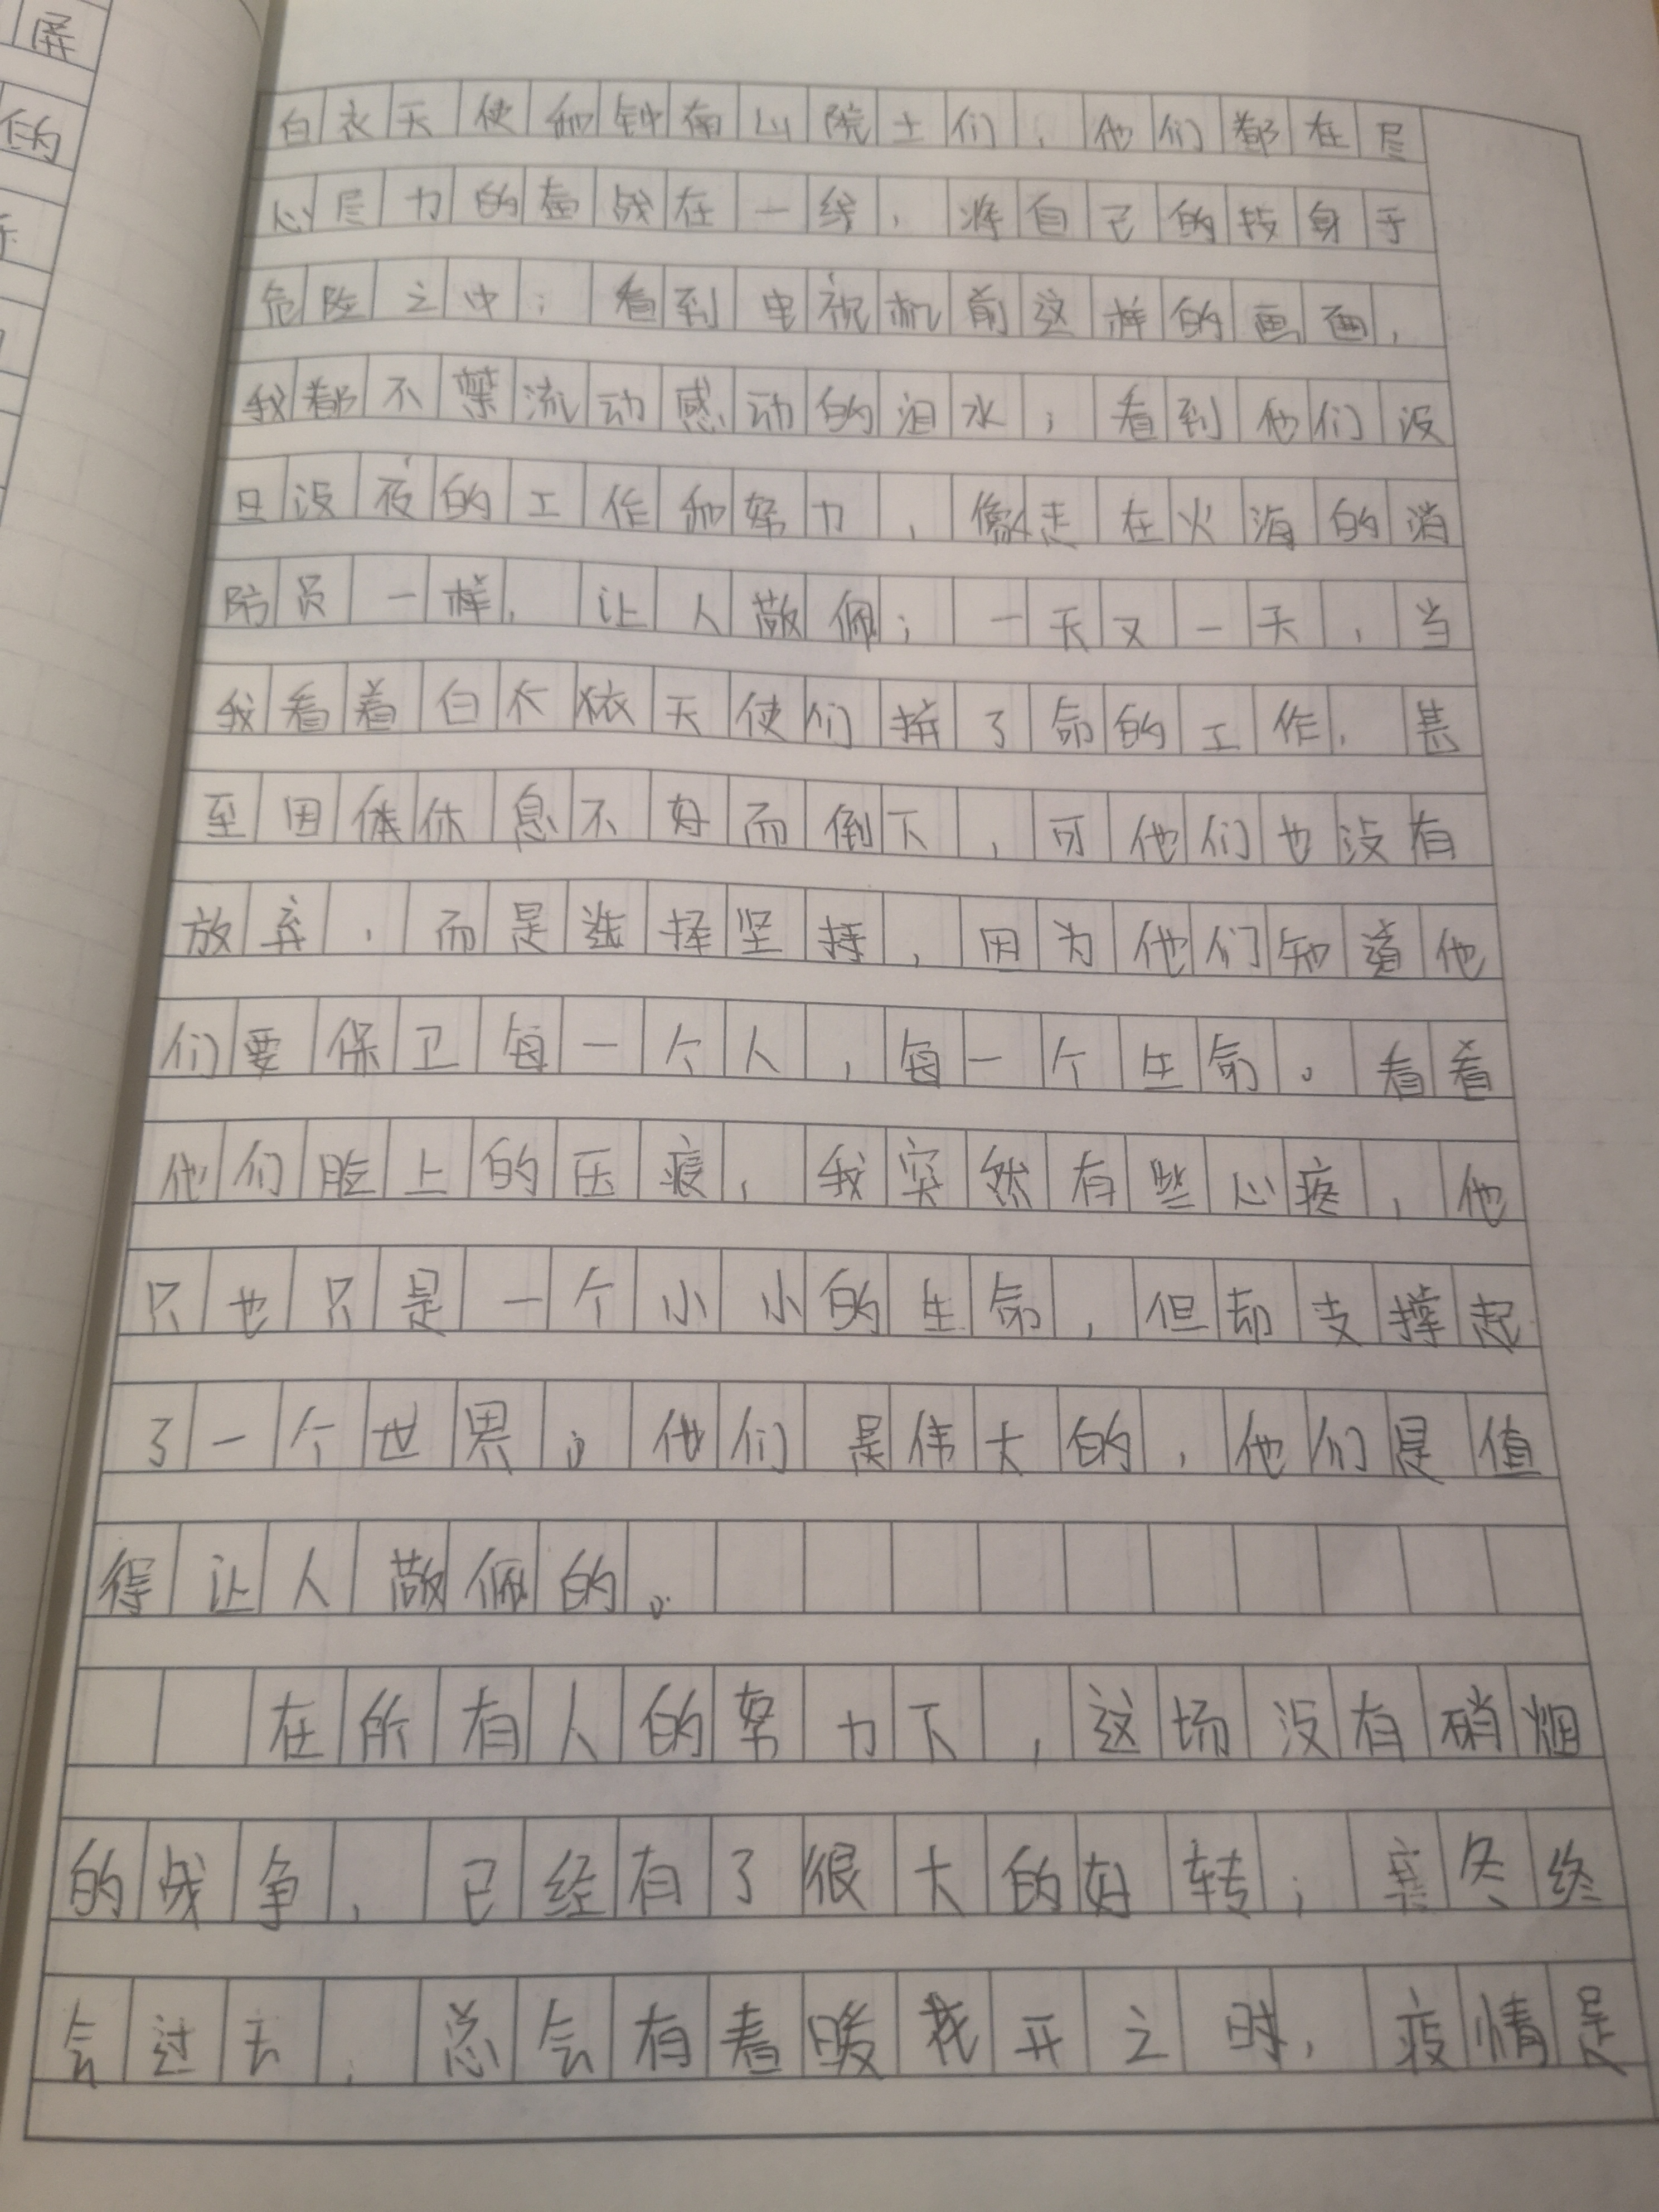 屏
的
白衣天使和钟南山院士们，他们都在尽
心尽力的奋战在一线，将自己的投身于
危险之中；看到电视机前这样的画面，
我都不禁流动感动的泪水；看到他们没
日没夜的工作和努力，像走在火海的消
防员一样，让人敬佩；一天又一天，当
我看着白衣天使们拼了命的工作，甚
至因休息不好而倒下，可他们也没有
放弃，而是选择坚持，因为他们知道他
们要保卫每一个人，每一个生命。看着
他们脸上的压痕，我突然有些心疼，他
只也只是一个小小的生命，但却支撑起
了一个世界。他们是伟大的，他们是值
得让人敬佩的。
在所有人的努力下，这场没有硝烟
的战争，已经有了很大的好转；寒冬终
会过去，总会有春暖花开之时，疫情是